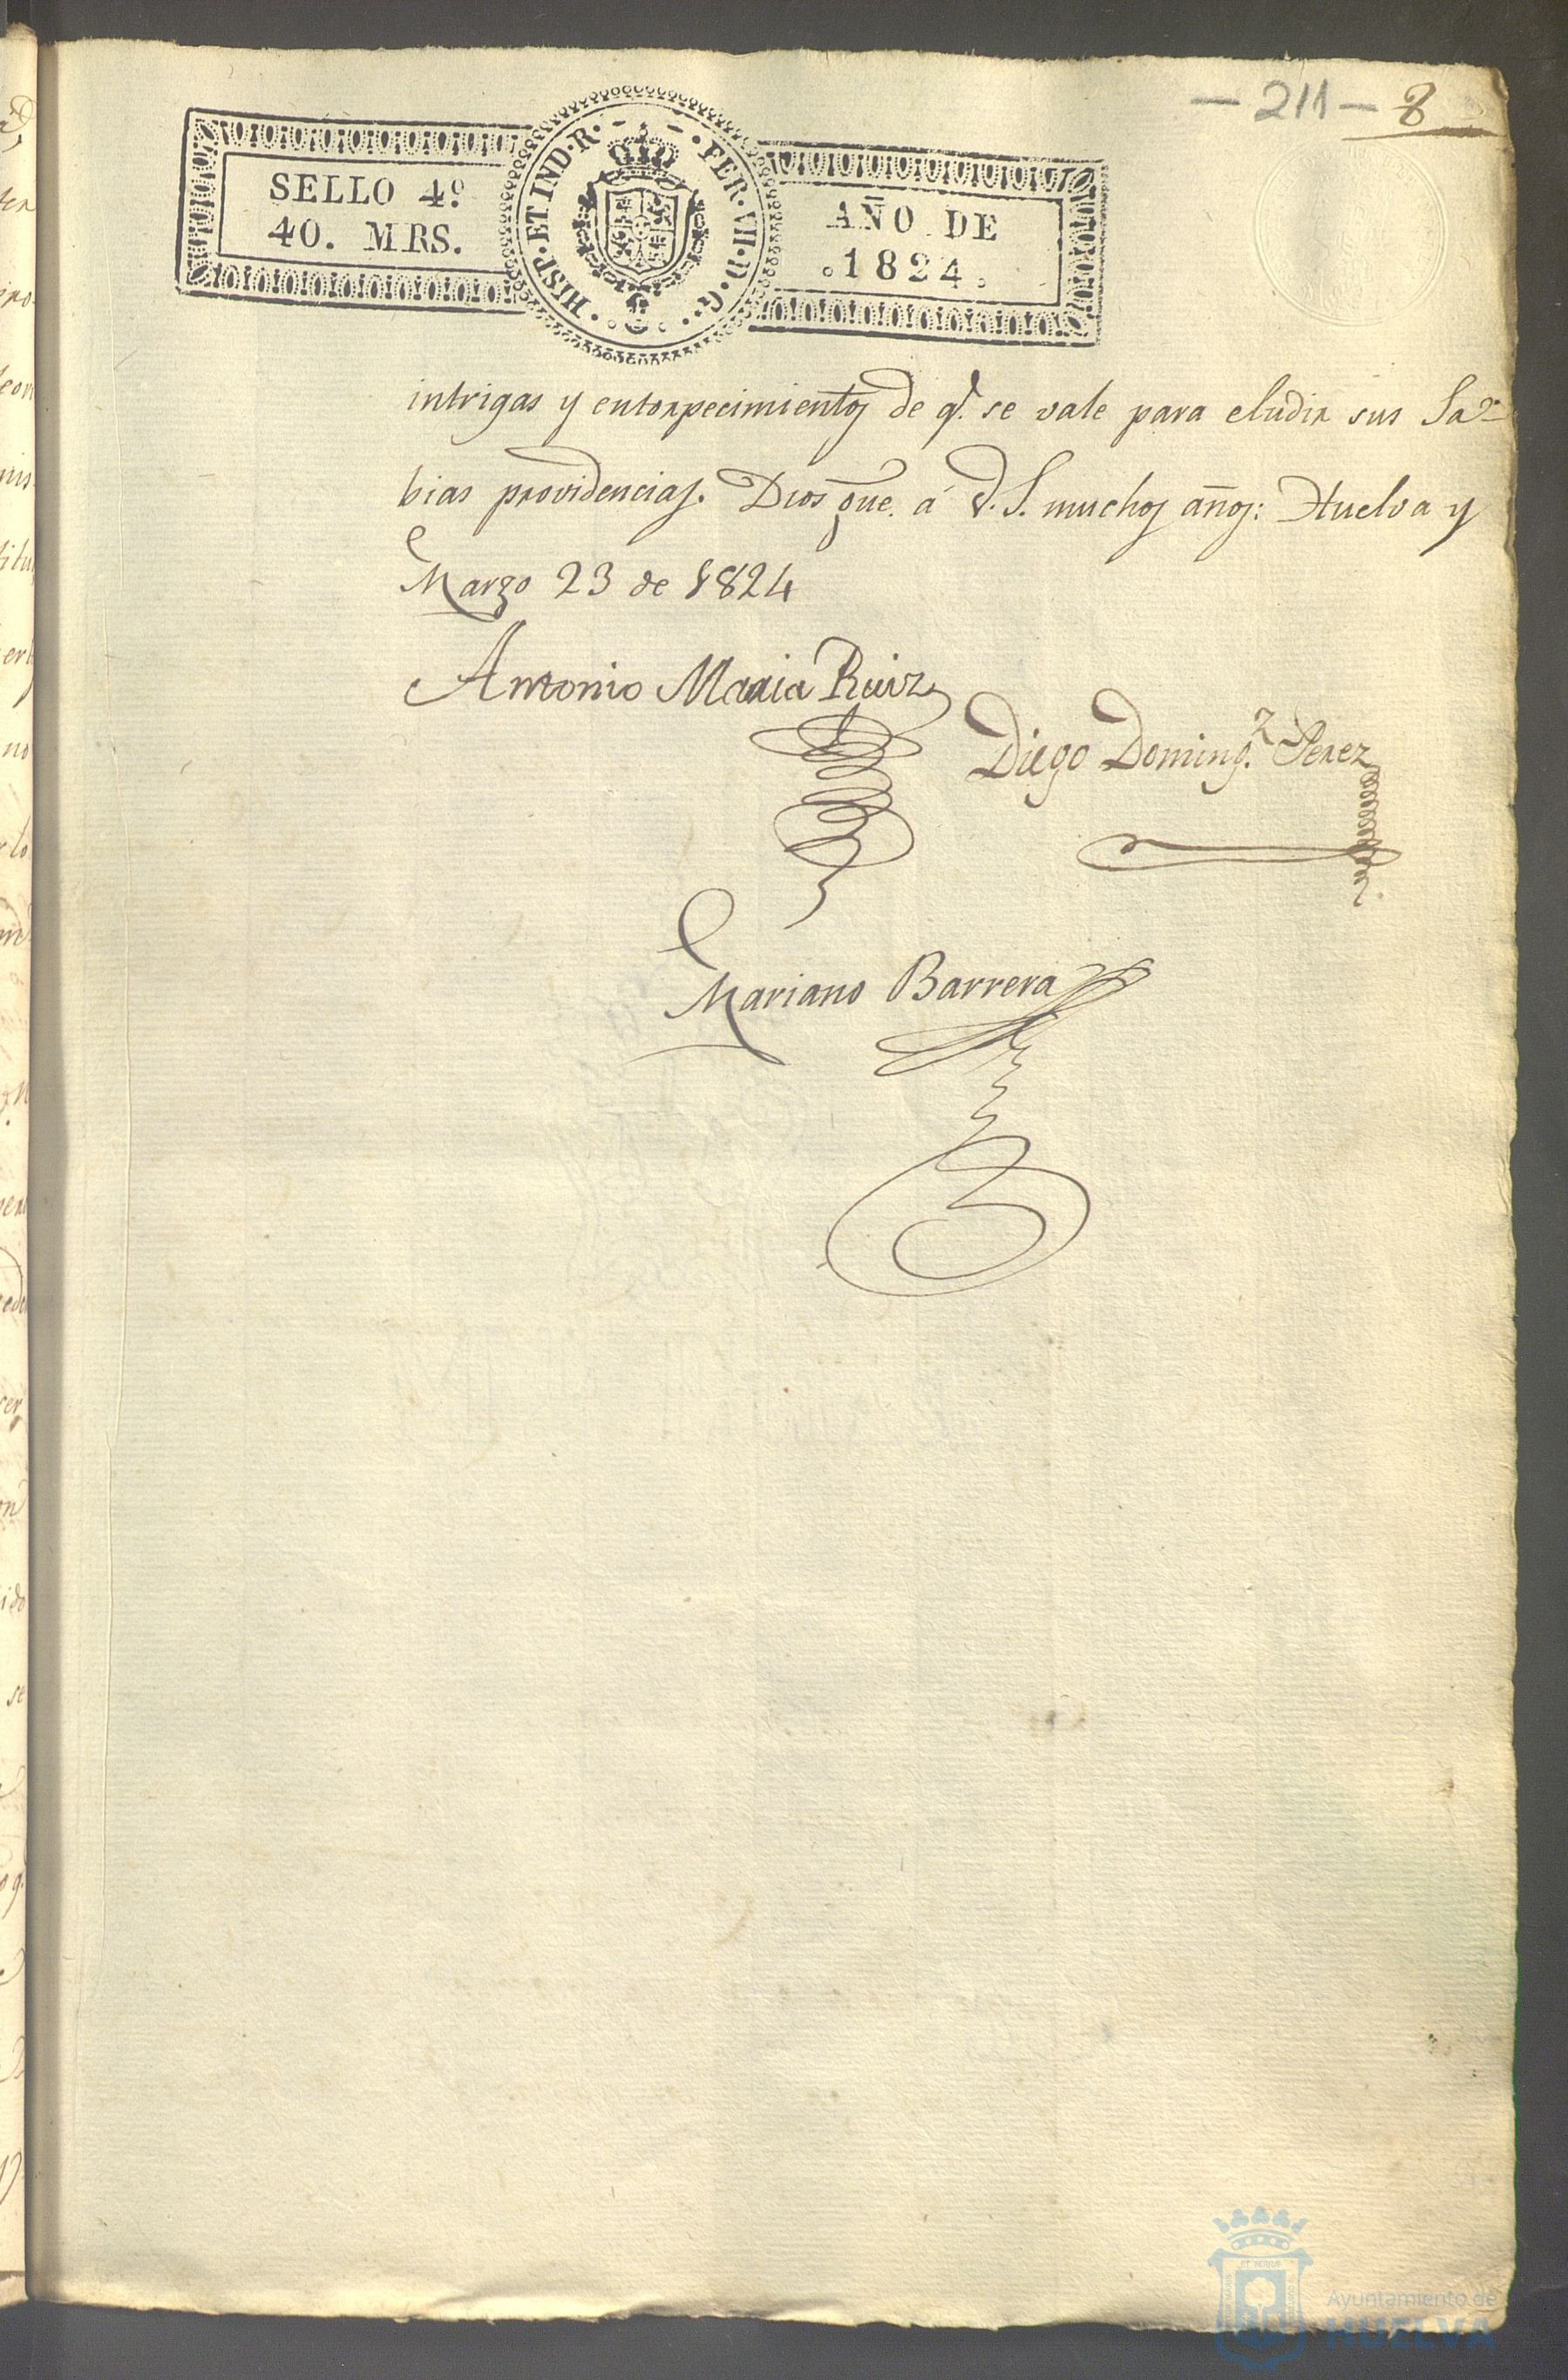 - 211 - 8
SELLO 4º
40. MRS.
HISP. ET IND. R. FER. VII. D. G.
AÑO DE
1824.
intrigas y entorpecimientos de q.e se vale para eludir sus Sa-
bias providencias. Dios gue. á V.S. muchos años: Huelva y
Marzo 23 de 1824
Antonio Maria Ruiz
Diego Doming.z Perez
Mariano Barrera
Ayuntamiento de
HUELVA